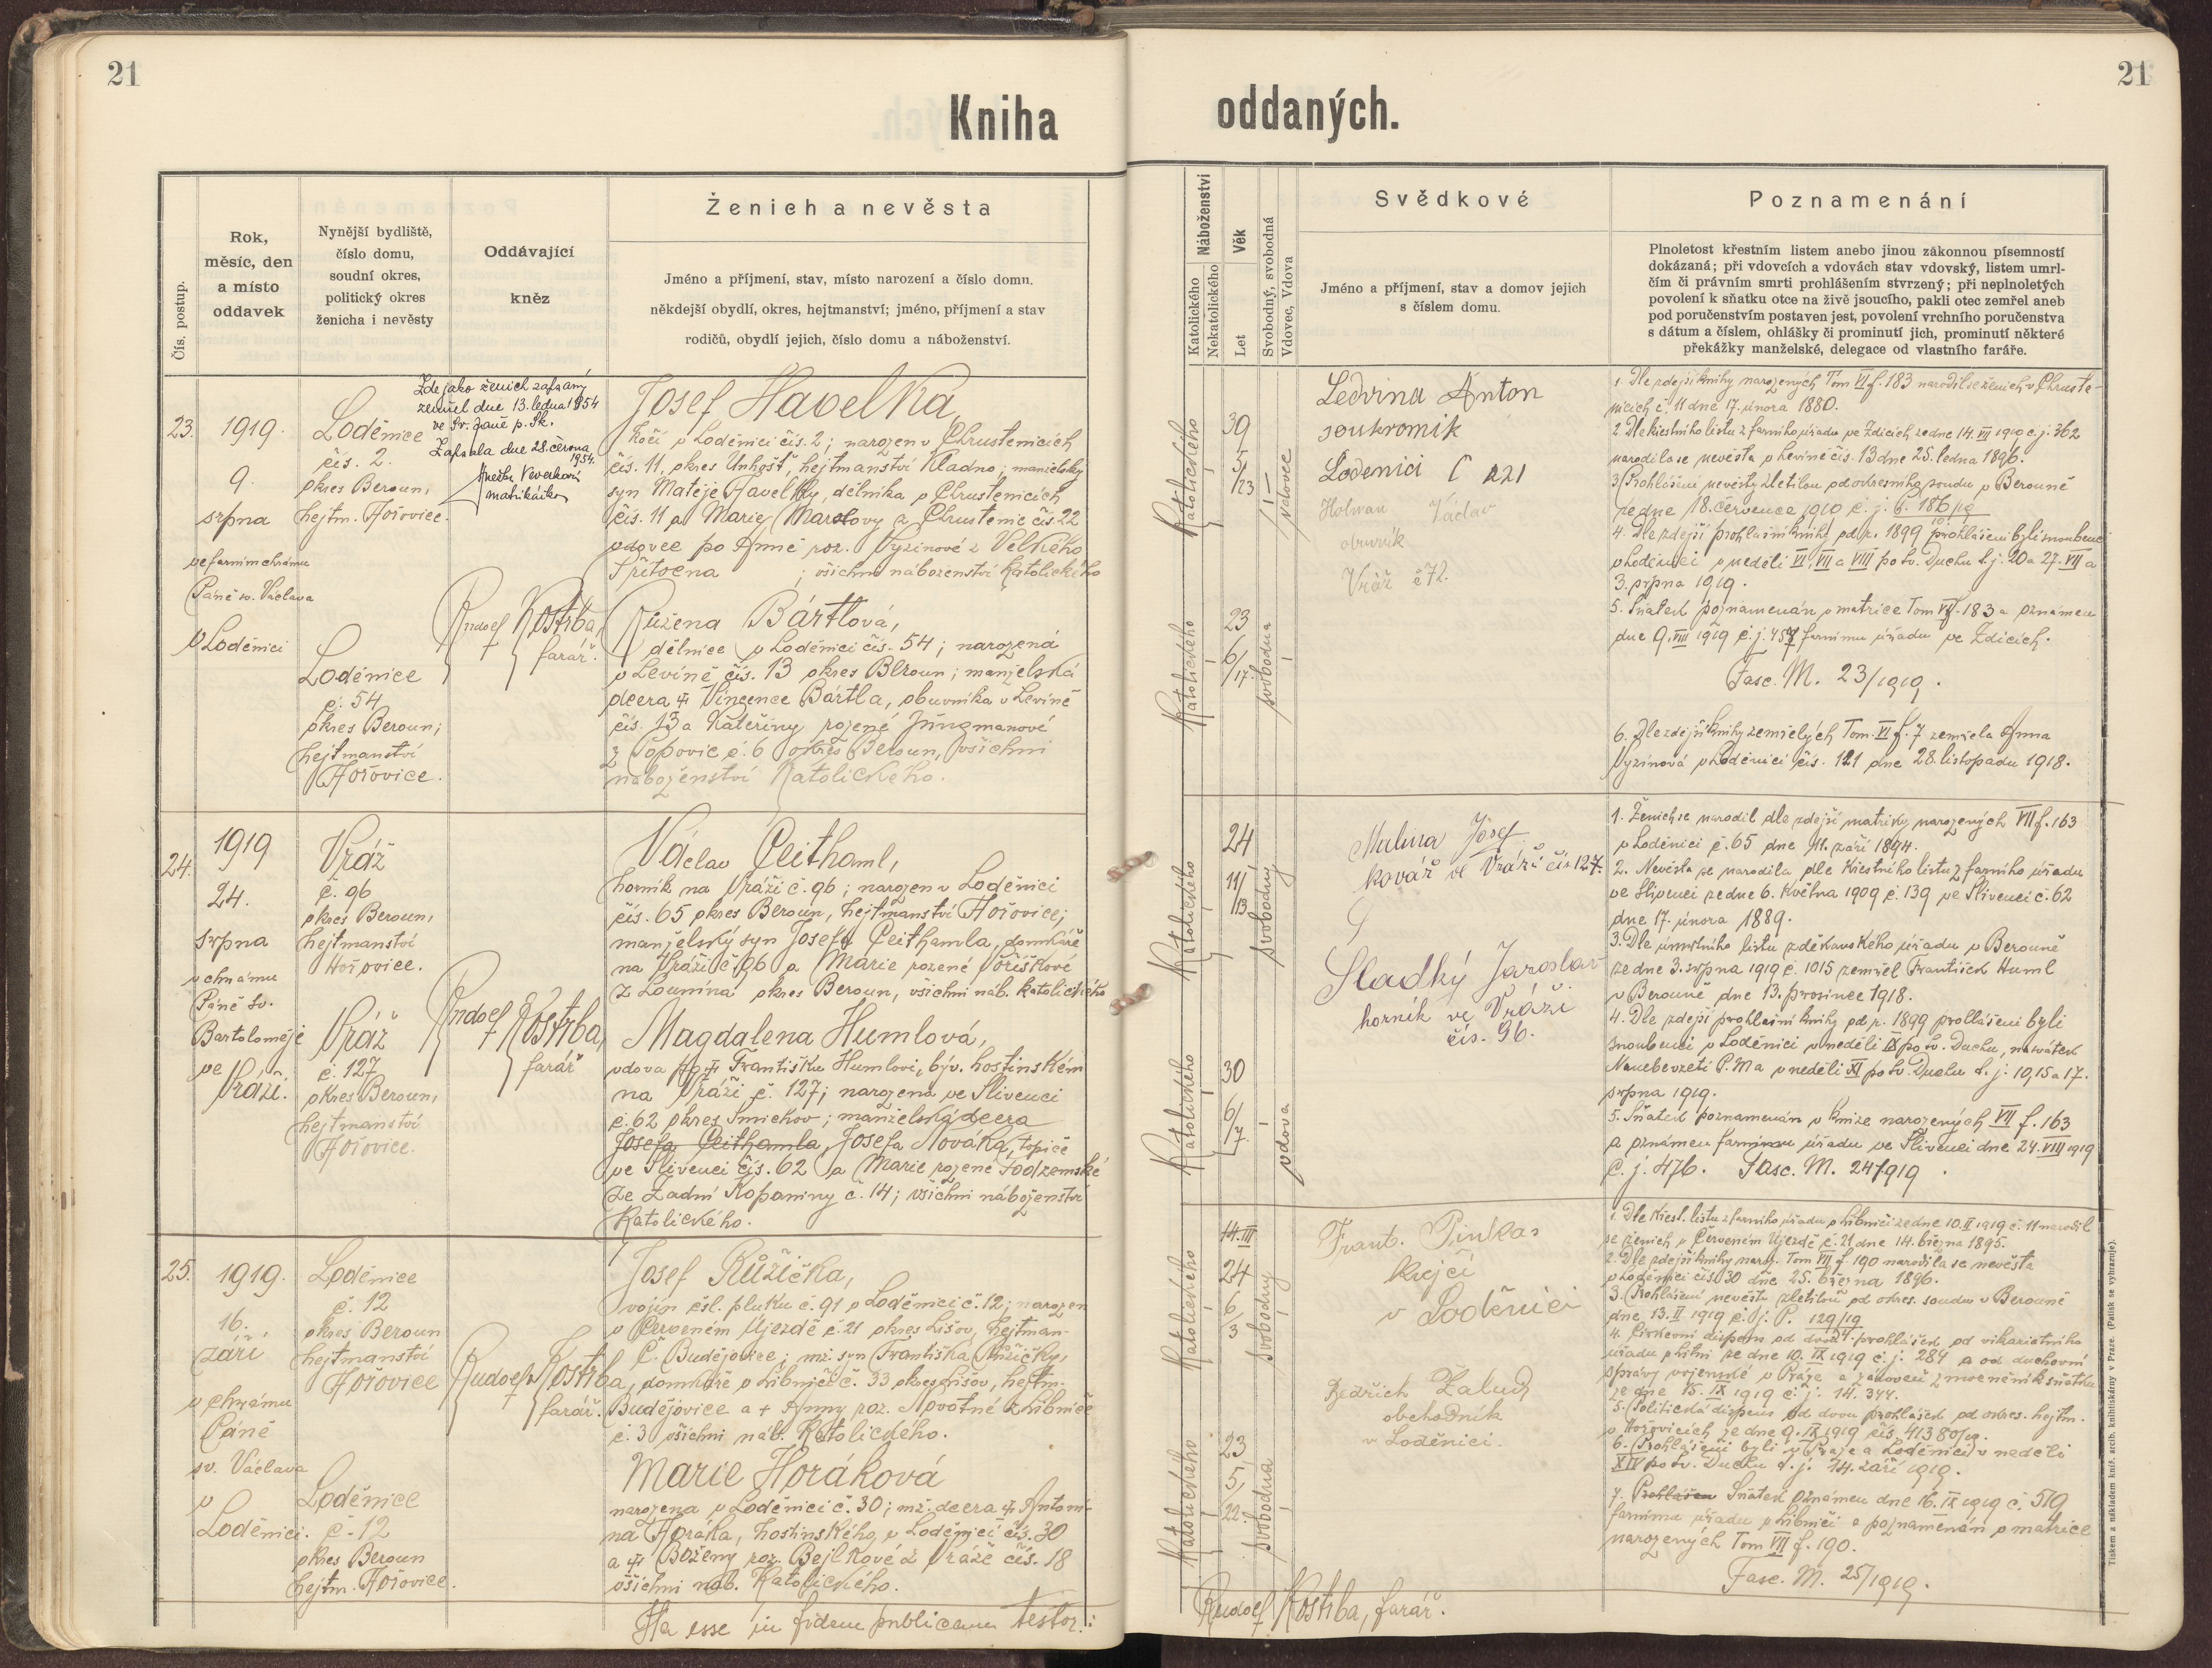 21
Kniha
Čís. postup.
Rok,
měsíc, den
a místo
oddavek
Nynější bydliště,
číslo domu,
soudní okres,
politický okres
ženicha i nevěsty
Oddávající
kněz
Ženich a nevěsta
Jméno a příjmení, stav, místo narození a číslo domu.
někdejší obydlí, okres, hejtmanství; jméno, příjmení a stav
rodičů, obydlí jejich, číslo domu a náboženství.
23.
1919.
9.
srpna
ve farním chrámu
Páně sv. Václava
v Loděnici
Loděnice
čís. 2.
okres Beroun,
hejtm. Hořovice.
Loděnice
č. 54
okres Beroun;
hejtmanství
Hořovice.
Zde jako ženich zapsaný
zemřel dne 13. ledna 1954
ve Sv. Janě p. Sk.
Zapsala dne 28. června
1954.
matrikářka
Rudolf Kostrba,
farář.
Josef Havelka,
kočí v Loděnici čís. 2; narozen v Chrustenicích
čís. 11, okres Unhošť, hejtmanství Kladno; manželský
syn Matěje Havelky, dělníka v Chrustenicích
čís. 11 a Marie z Chrustenic čís. 22
vdovec po Anně roz. Vyzinové z Velkého
Přítočna ; všichni náboženství katolického
Růžena Bártlová,
dělnice v Loděnici čís. 54; narozená
v Levíně čís. 13 okres Beroun; manželská
dcera † Vincence Bártla, obuvníka v Levíně
čís. 13 a Kateřiny rozené Jungmanové
z Popovic č. 6 okres Beroun, všichni
náboženství katolického.
24.
1919
24.
srpna
v chrámu
Páně sv.
Bartoloměje
ve
Vráži.
Vráž
č. 96
okres Beroun,
hejtmanství
Hořovice.
Vráž
č. 127
okres Beroun,
hejtmanství
Hořovice.
Rudolf Kostrba,
farář
Václav Ceithaml,
horník na Vráži č. 96; narozen v Loděnici
čís. 65 okres Beroun, hejtmanství Hořovice;
manželský syn Josefa Ceithamla, domkáře
na Vráži č. 96 a Marie rozené Voříškové
z Lounína okres Beroun, všichni náb. katolického
Magdalena Humlová,
vdova po † Františku Humlovi, býv. hostinském
na Vráži č. 127; narozena ve Slivenci
č. 62 okres Smíchov; manželská dcera
Josefa Ceithamla, Josefa Nováka, topiče
ve Slivenci čís. 62 a Marie rozené Podzemské
ze Zadní Kopaniny č. 14; všichni náboženství
katolického.
25.
1919.
16.
září
v chrámu
Páně
sv. Václava
v
Loděnici.
Loděnice
č. 12
okres Beroun
hejtmanství
Hořovice
Loděnice
č. 12
okres Beroun
hejtm. Hořovice.
Rudolf Kostrba,
farář.
Josef Růžička,
vojín čsl. pluku č. 91 v Loděnici č. 12; narozen
v Červeném Újezdě č. 21 okres Lišov, hejtman-
Č. Budějovice; mž. syn Františka Růžičky,
domkáře v Libniči č. 33 okres Lišov, hejtm.
Budějovice a † Anny roz. Novotné z Libniče
č. 3 všichni náb. katolického.
Marie Horáková
narozena v Loděnici č. 30; mž. dcera † Antoní-
na Horáka, hostinského v Loděnici čís. 30
a † Boženy roz. Bejlkové z Vráže čís. 18
všichni náb. katolického.
Ita esse in fidem publicam testor:
21
oddaných.
Náboženství
Katolického
Nekatolického
Věk
Let
Svobodný, svobodná
Vdovec, Vdova
Svědkové
Jméno a příjmení, stav a domov jejich
s číslem domu.
Poznamenání
Plnoletost křestním listem anebo jinou zákonnou písemností
dokázaná; při vdovcích a vdovách stav vdovský, listem úmrt-
čím či právním smrti prohlášením stvrzený; při neplnoletých
povolení k sňatku otce na živě jsoucího, pakli otec zemřel aneb
pod poručenstvím postaven jest, povolení vrchního poručenstva
s dátum a číslem, ohlášky či prominutí jich, prominutí některé
překážky manželské, delegace od vlastního faráře.
Katolického
39
5/23
vdovec
Katolického
23
6/17.
svobodna
Ledvina Anton
soukromik
Lodenici č 121
Holman Václav
obuvník
Vráž č 72.
1. Dle zdejší knihy narozených Tom VI f. 183 narodil se ženich v Chruste-
nicích č. 11 dne 17. února 1880.
2. Dle křestního listu z farního úřadu ve Zdicích ze dne 14. VII 1919 č. j. 362
narodila se nevěsta v Levíně čís. 13 dne 25. ledna 1896.
3. Prohlášení nevěsty zletilou od okresního soudu v Berouně
ze dne 18. července 1910 č. j. 6. 186/19
4. Dle zdejší prohlašní knihy od r. 1899 prohlášeni byli snoubenci
v Loděnici v neděli VI, VII a VIII po sv. Duchu t. j. 20 a 27. VII a
3. srpna 1919.
5. Sňatek poznamenán v matrice Tom VI f. 183 a oznámen
dne 9. VIII 1919 č. j. 457 farnímu úřadu ve Zdicích.
Fasc. M. 23/1919.
6. Dle zdejší knihy zemřelých Tom. VI f. 7 zemřela Anna
Vyzinová v Loděnici čís. 121 dne 28. listopadu 1918.
Katolického
24
11/13
svobodný
Katolického
30
6/7.
vdova
Malina Josef
kovář ve Vráži čís 127.
Sladký Jaroslav
horník ve Vráži
čís. 96.
1. Ženich se narodil dle zdejší matriky narozených VII f. 163
v Loděnici č. 65 dne 11. září 1894.
2. Nevěsta se narodila dle křestního listu z farního úřadu
ve Slivenci ze dne 6. května 1909 č. 139 ve Slivenci č. 62
dne 17. února 1889.
3. Dle úmrtního listu z děkanského úřadu v Berouně
ze dne 3. srpna 1919 č. 1015 zemřel František Huml
v Berouně dne 13. prosince 1918.
4. Dle zdejší prohlašní knihy od r. 1899 prohlášeni byli
snoubenci v Loděnici v neděli IX po sv. Duchu, na svátek
Nanebevzetí P. Ma v neděli XI po sv. Duchu t. j. 10, 15 a 17.
srpna 1919.
5. Sňatek poznamenán v knize narozených VII f. 163
a oznámen farnímu úřadu ve Slivenci dne 24. VIII 1919
č. j. 476. Fasc. M. 24/1919
Katolického
14. III
24
6/3
svobodný
Katolického
23
5/22.
svobodná
Frant. Pinkas
krejčí
v Loděnici
Bedřich Žalud
obchodník
v Loděnici.
1. Dle křest. listu z farního úřadu v Libniči ze dne 10. II 1919 č. 11 narodil
se ženich v Červeném Újezdě č. 21 dne 14. března 1895.
2. Dle zdejší knihy naroz. Tom VII f. 190 narodila se nevěsta
v Loděnici čís. 30 dne 25. března 1896.
3. Prohlášení nevěsty zletilou od okres. soudu v Berouně
dne 13. II 1919 č. j. P. 129/19
4. Církevní dispens od dvou prohlášek od vikariatního
úřadu ze dne 10. IX 1919 č. j. 284 a od duchovní
správy vojenské v Praze a zároveň zmocnění k sňatku
ze dne 15. IX 1919 č. j. 14. 344.
5. Politická dispens od dvou prohlášek od okres. hejtm.
v Hořovicích ze dne 9. IX 1919 čís. 41380/19.
6. Prohlášeni byli v Praze a Loděnici v neděli
XIV po sv. Duchu t. j. 14. září 1919.
7. Prohlášen Sňatek oznámen dne 16. IX 1919 č. 519
farnímu úřadu v Libniči a poznamenán v matrice
narozených Tom VII f. 190.
Fasc. M. 25/1919.
Rudolf Kostrba, farář.
Tiskem a nákladem kníž. arcib. knihtiskárny v Praze. (Patisk se vyhrazuje).